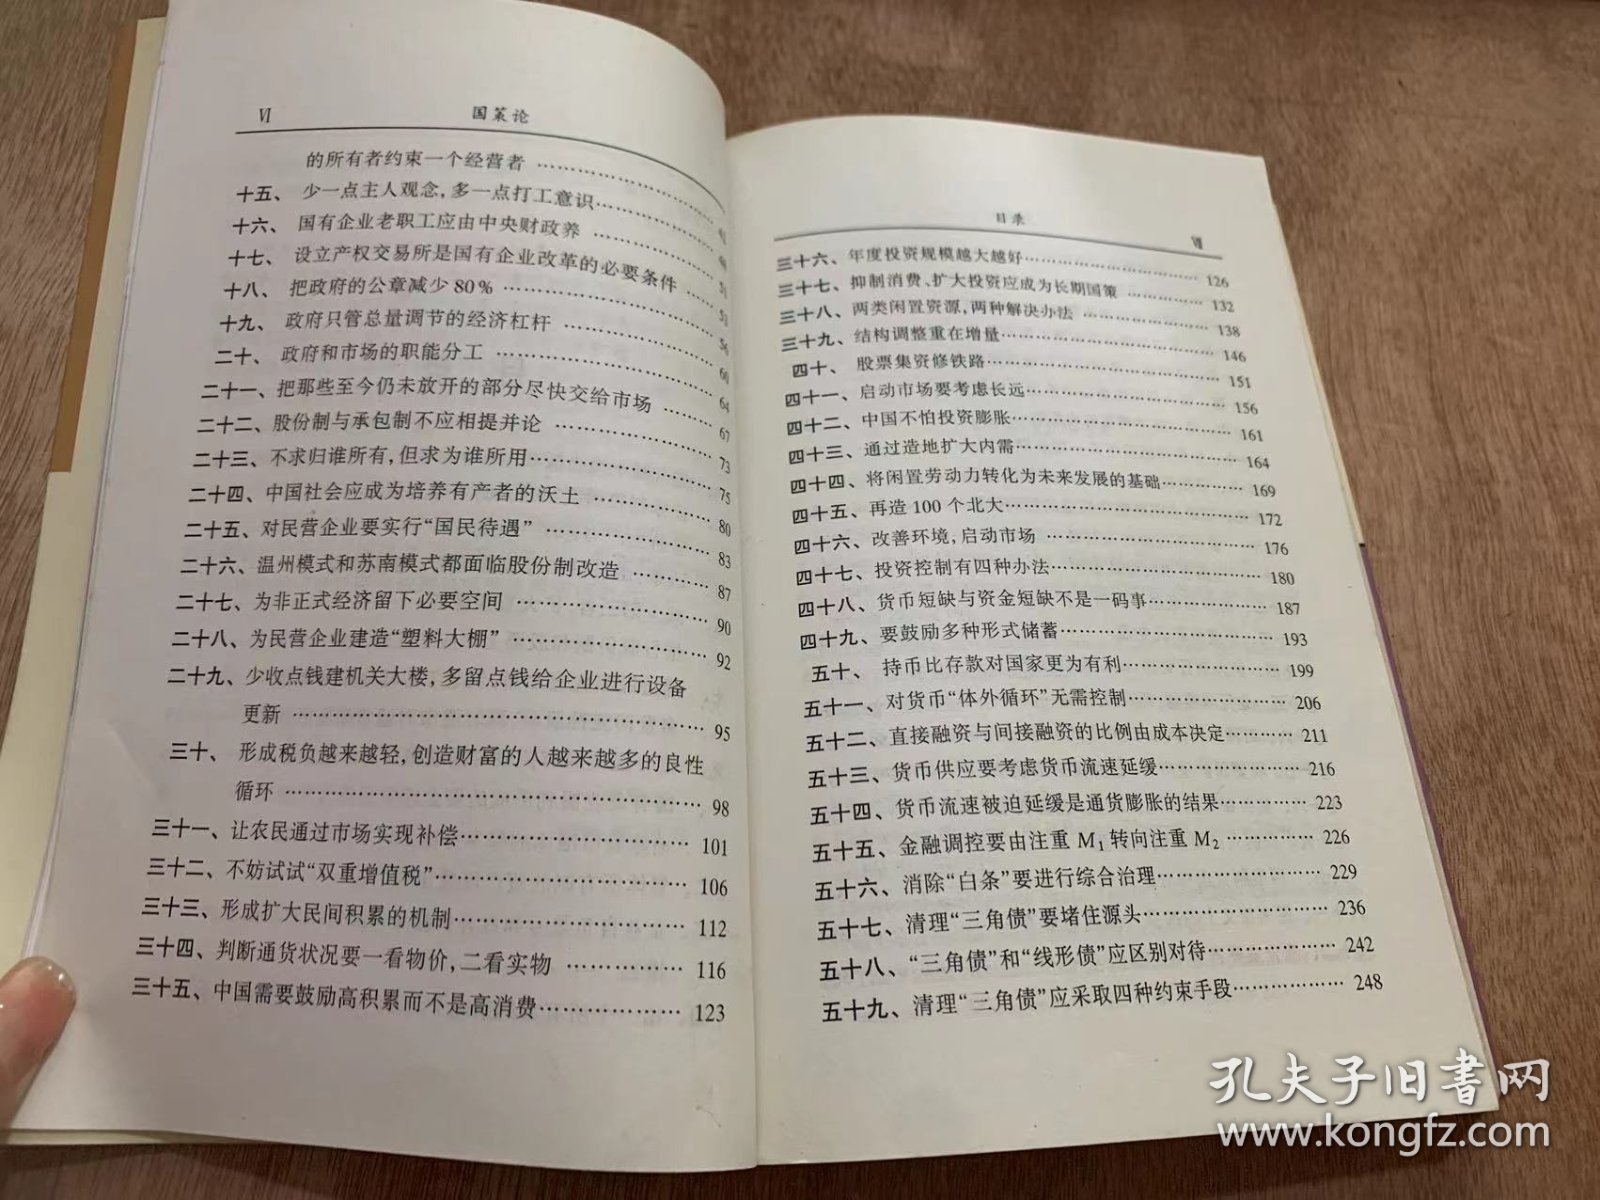 Ⅵ 国策论
的所有者约束一个经营者 ……………
十五、少一点主人观念,多一点打工意识……………
十六、国有企业老职工应由中央财政养 ……………
十七、设立产权交易所是国有企业改革的必要条件 ……
十八、把政府的公章减少80% …………… 51
十九、政府只管总量调节的经济杠杆 …………… 53
二十、政府和市场的职能分工 …………… 56
二十一、把那些至今仍未放开的部分尽快交给市场 …… 60
二十二、股份制与承包制不应相提并论 …………… 64
67
二十三、不求归谁所有,但求为谁所用…………… 73
二十四、中国社会应成为培养有产者的沃土 …………… 75
二十五、对民营企业要实行“国民待遇” …………… 80
83
二十六、温州模式和苏南模式都面临股份制改造 ………… 87
二十七、为非正式经济留下必要空间 …………… 90
二十八、为民营企业建造“塑料大棚” …………… 92
二十九、少收点钱建机关大楼,多留点钱给企业进行设备
更新 …………… 95
三十、形成税负越来越轻,创造财富的人越来越多的良性
循环 …………… 98
三十一、让农民通过市场实现补偿…………… 101
三十二、不妨试试“双重增值税”…………… 106
三十三、形成扩大民间积累的机制…………… 112
三十四、判断通货状况要一看物价,二看实物 …………… 116
三十五、中国需要鼓励高积累而不是高消费…………… 123
目录 Ⅶ
三十六、年度投资规模越大越好…………… 126
三十七、抑制消费、扩大投资应成为长期国策 ………… 132
三十八、两类闲置资源,两种解决办法 …………… 138
三十九、结构调整重在增量…………… 146
四十、股票集资修铁路…………… 151
四十一、启动市场要考虑长远…………… 156
四十二、中国不怕投资膨胀…………… 161
四十三、通过造地扩大内需…………… 164
四十四、将闲置劳动力转化为未来发展的基础………… 169
四十五、再造100个北大…………… 172
四十六、改善环境,启动市场 …………… 176
四十七、投资控制有四种办法…………… 180
四十八、货币短缺与资金短缺不是一码事…………… 187
四十九、要鼓励多种形式储蓄…………… 193
五十、持币比存款对国家更为有利…………… 199
五十一、对货币“体外循环”无需控制…………… 206
五十二、直接融资与间接融资的比例由成本决定………… 211
五十三、货币供应要考虑货币流速延缓…………… 216
五十四、货币流速被迫延缓是通货膨胀的结果………… 223
五十五、金融调控要由注重M₁转向注重M₂ ………… 226
五十六、消除“白条”要进行综合治理…………… 229
五十七、清理“三角债”要堵住源头…………… 236
五十八、“三角债”和“线形债”应区别对待…………… 242
五十九、清理“三角债”应采取四种约束手段…………… 248
孔夫子旧书网
www.kongfz.com